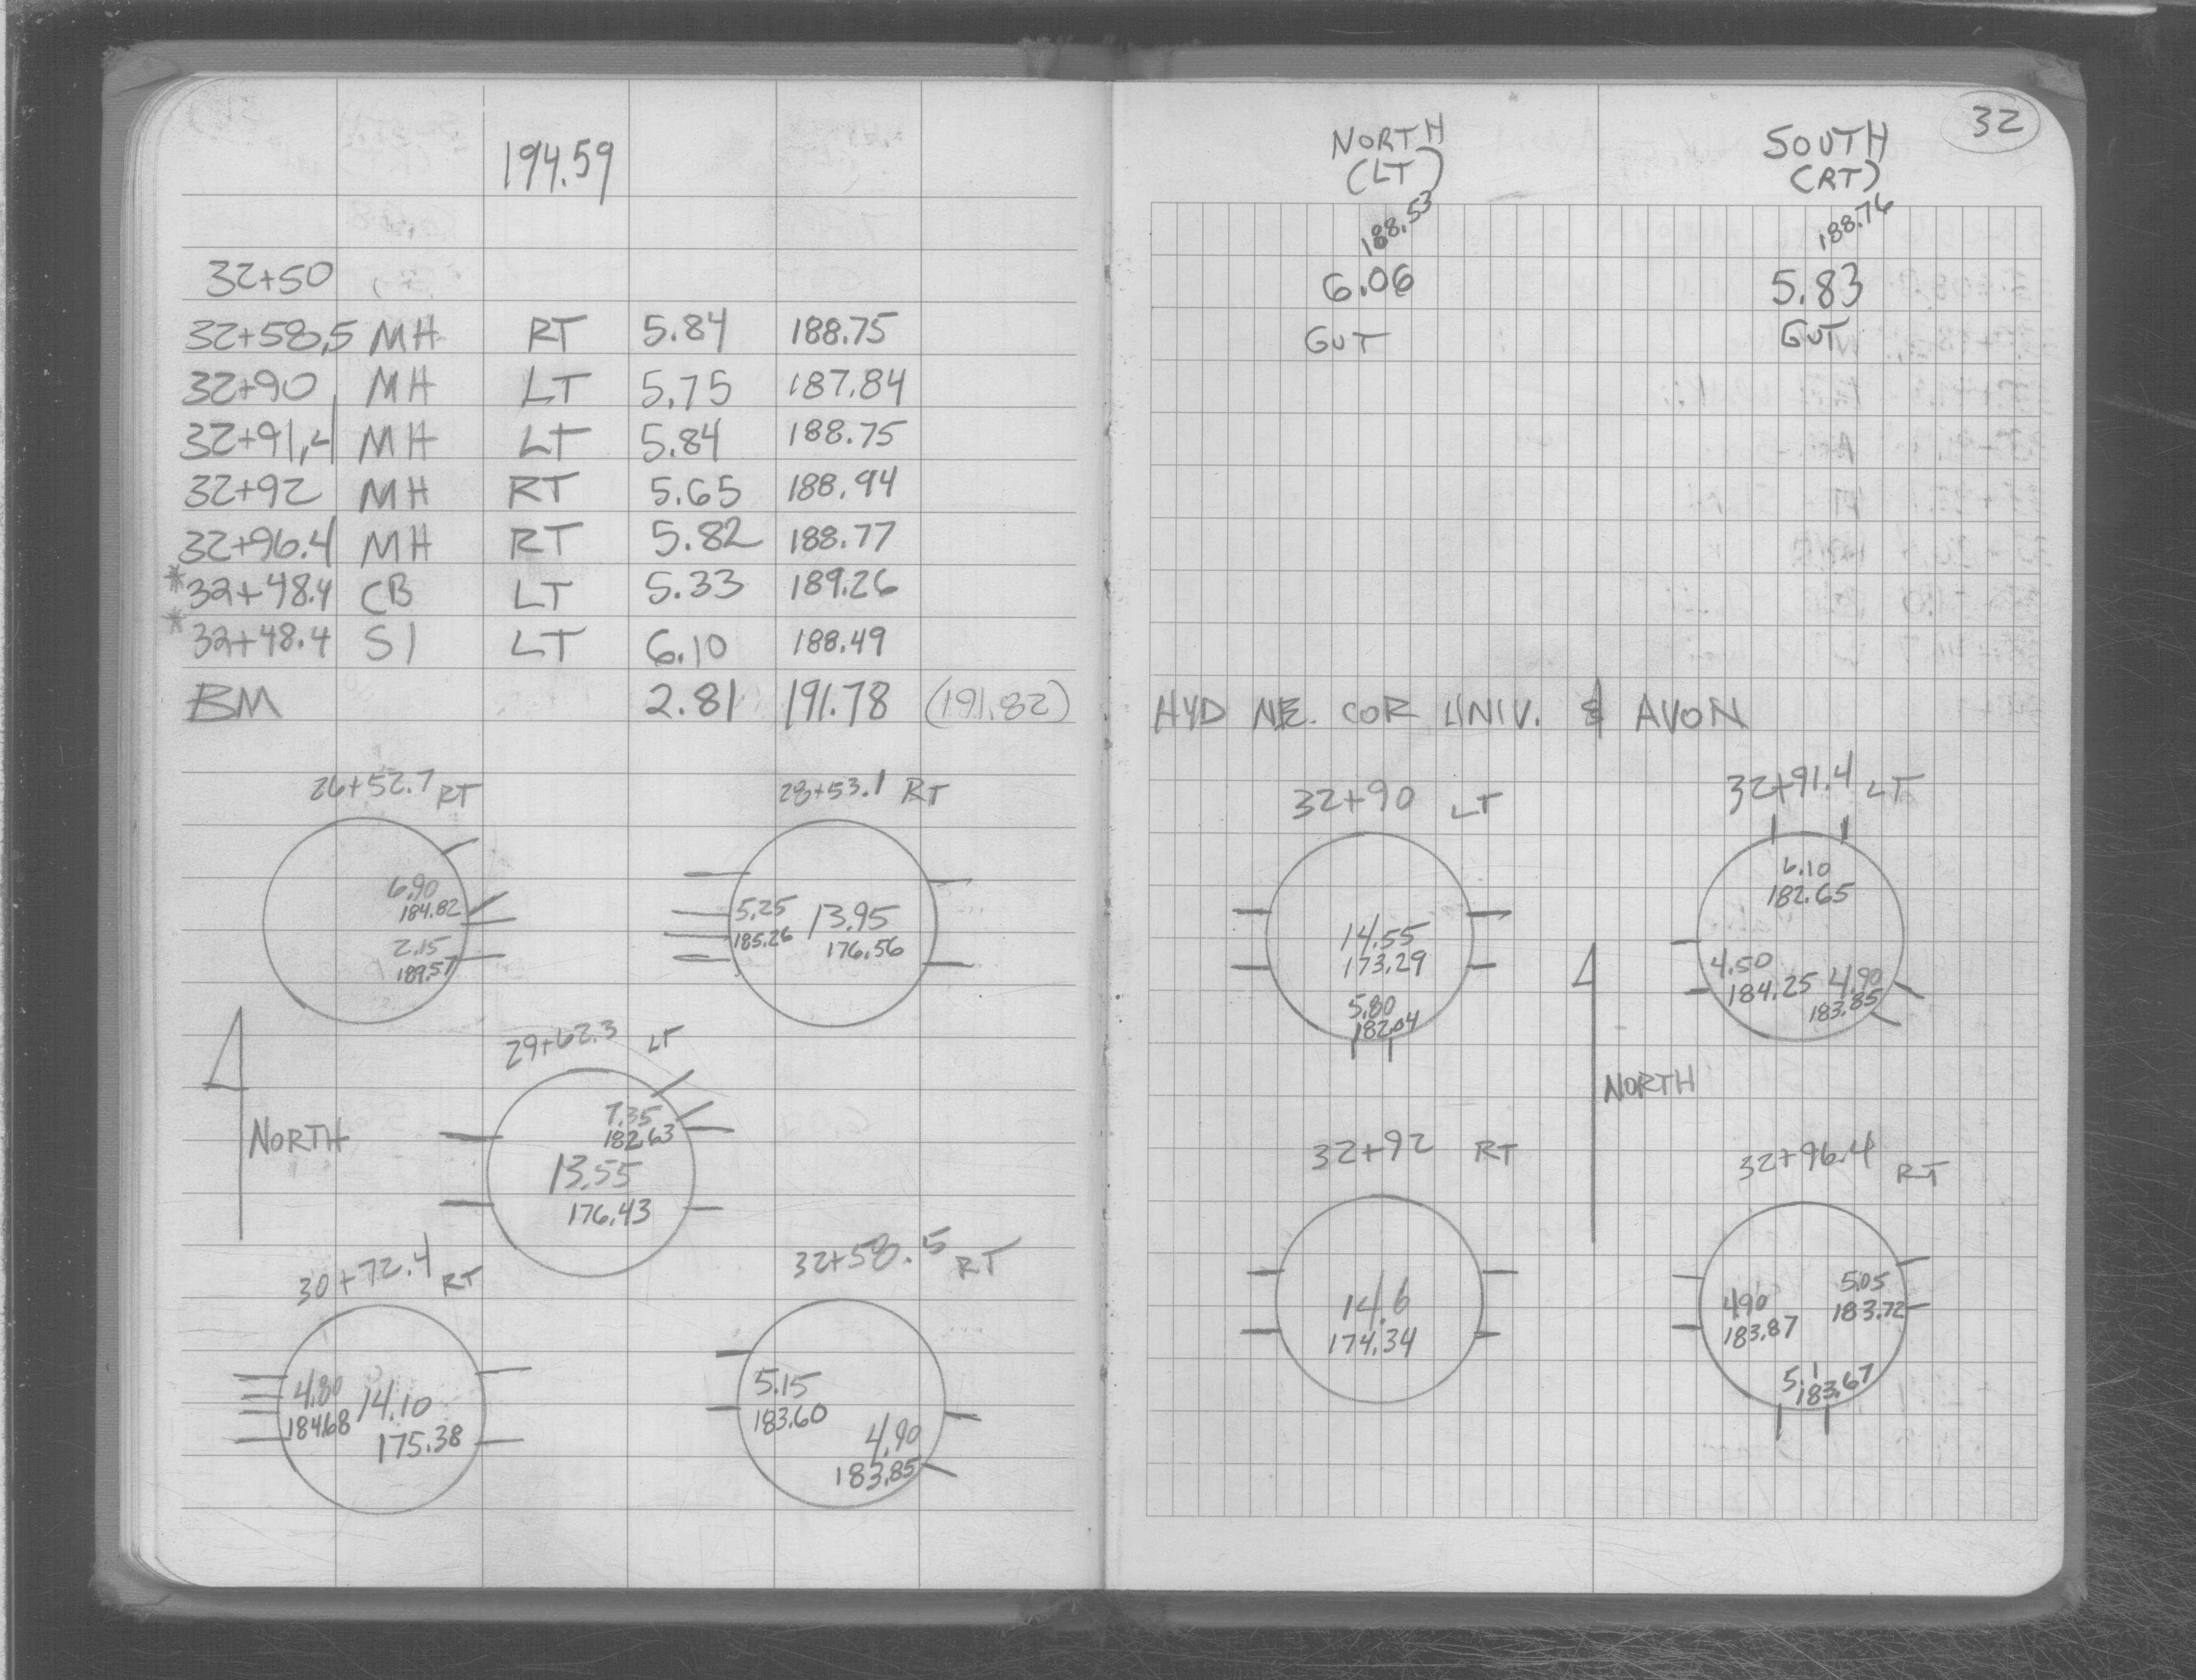 194.59
32+50
32+58.5 MH RT 5.84 188.75
32+90 MH LT 5.75 187.84
32+91.4 MH LT 5.84 188.75
32+92 MH RT 5.65 188.94
32+96.4 MH RT 5.82 188.77
*32+48.4 CB LT 5.33 189.26
*32+48.4 S1 LT 6.10 188.49
BM 2.81 191.78 (191.82)
26+52.7 RT
6.90
184.82
2.15
189.57
28+53.1 RT
5.25 13.95
185.26 176.56
29+62.3 LT
7.35
182.63
13.55
176.43
NORTH
30+72.4 RT
4.80 14.10
184.68 175.38
32+58.5 RT
5.15
183.60
4.90
183.85
32
NORTH
(LT)
188.53
6.06
GUT
SOUTH
(RT)
188.76
5.83
GUT
HYD NE. COR UNIV. & AVON
32+90 LT
14.55
173.29
5.80
182.04
32+91.4 LT
6.10
182.65
4.50
184.25
4.90
183.85
NORTH
32+92 RT
14.6
174.34
32+96.4 RT
4.90
183.87
5.05
183.72
5.1
183.67